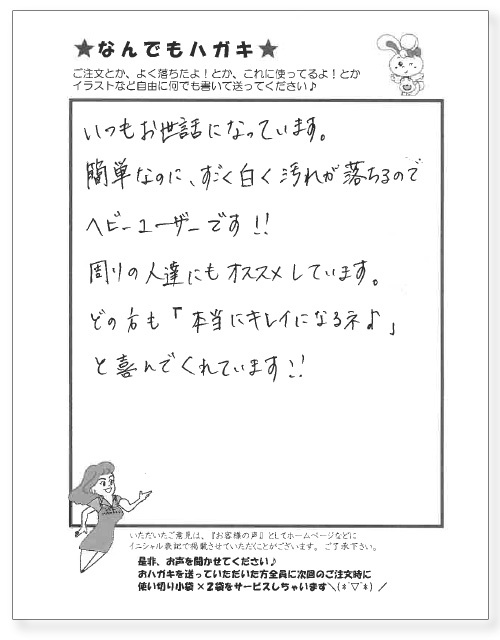 ★なんでもハガキ★
ご注文とか、よく落ちたよ！とか、これに使ってるよ！とか
イラストなど自由に何でも書いて送ってください♪
いつもお世話になっています。
簡単なのに、すごく白く汚れが落ちるので
ヘビーユーザーです!!
周りの人達にもオススメしています。
どの方も「本当にキレイになるネよ」
と喜んでくれています!!
いただいたご意見は、『お客様の声』としてホームページなどに
イニシャル表記で掲載させていただくことがございます。ご了承下さい。
是非、お声を聞かせてください♪
おハガキを送っていただいた方全員に次回のご注文時に
使い切り小袋×2袋をサービスしちゃいます＼(*´▽`*)／